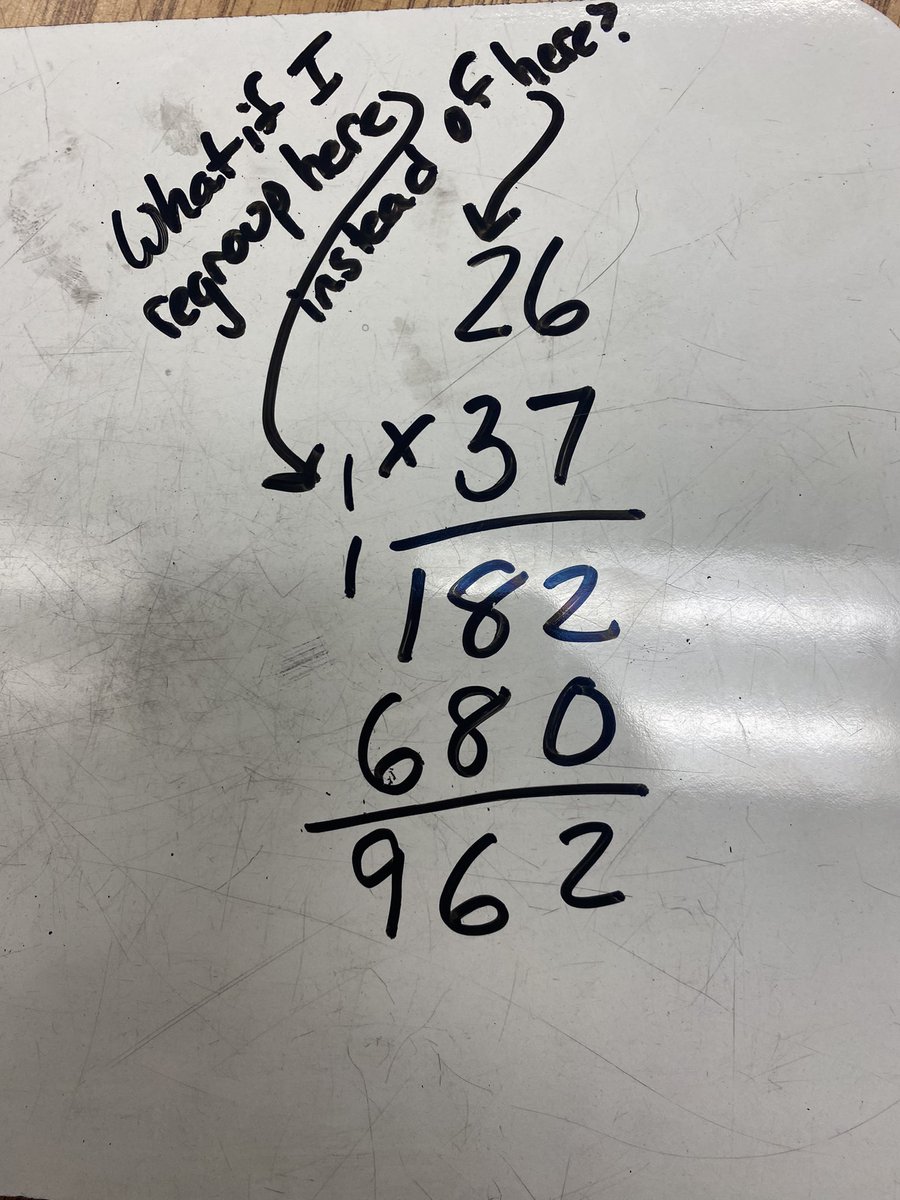 What if I
regroup here
instead of here?
26
1 x 37
1 182
680
962